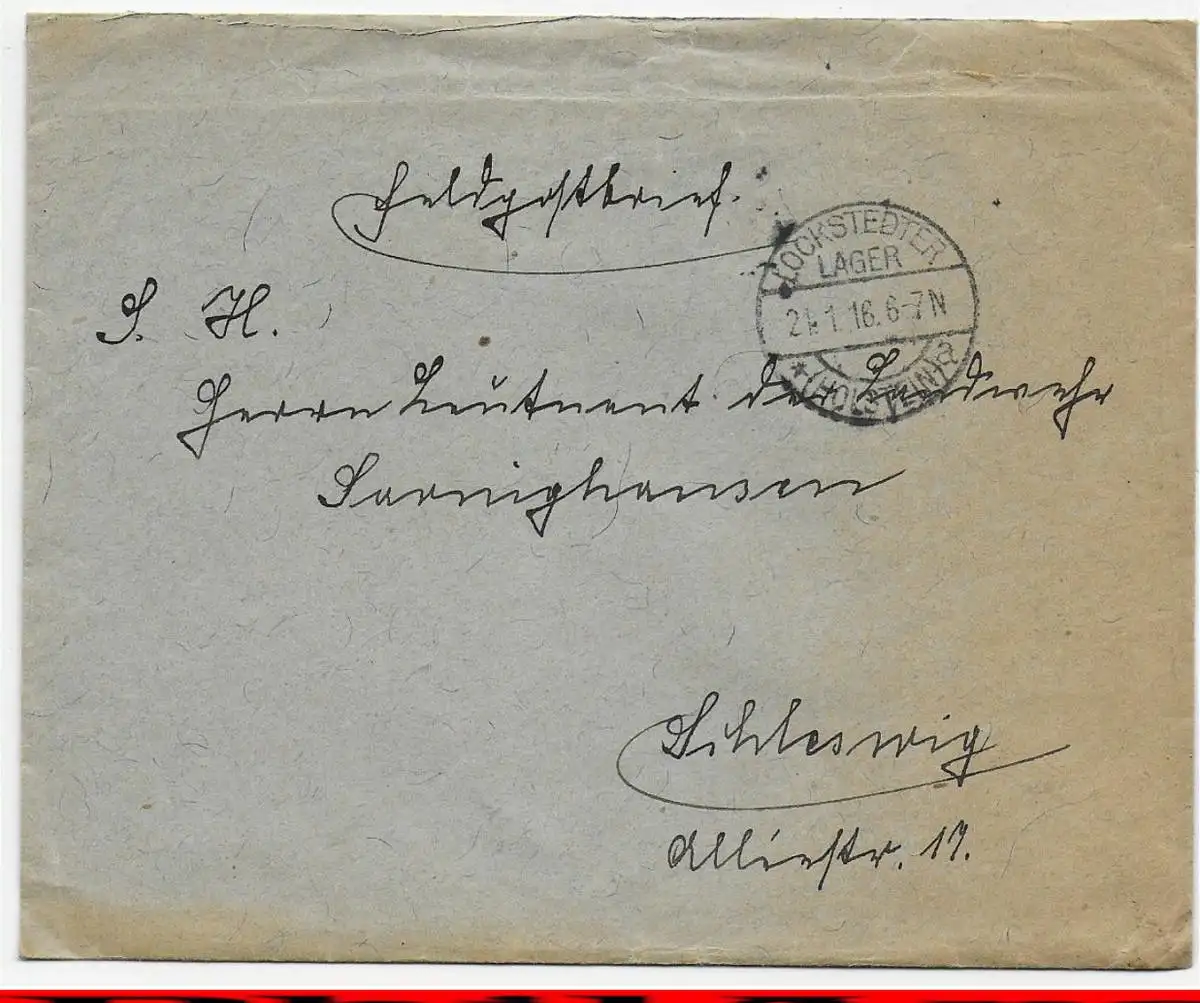 Feldpostbrief.
LOCKSTEDTER
LAGER
21.1.16.6-7N
* (HOLSTEIN) a
S. H.
Herrn Leutnant der Landwehr
Sarnighausen
Schleswig
Alleestr. 17.